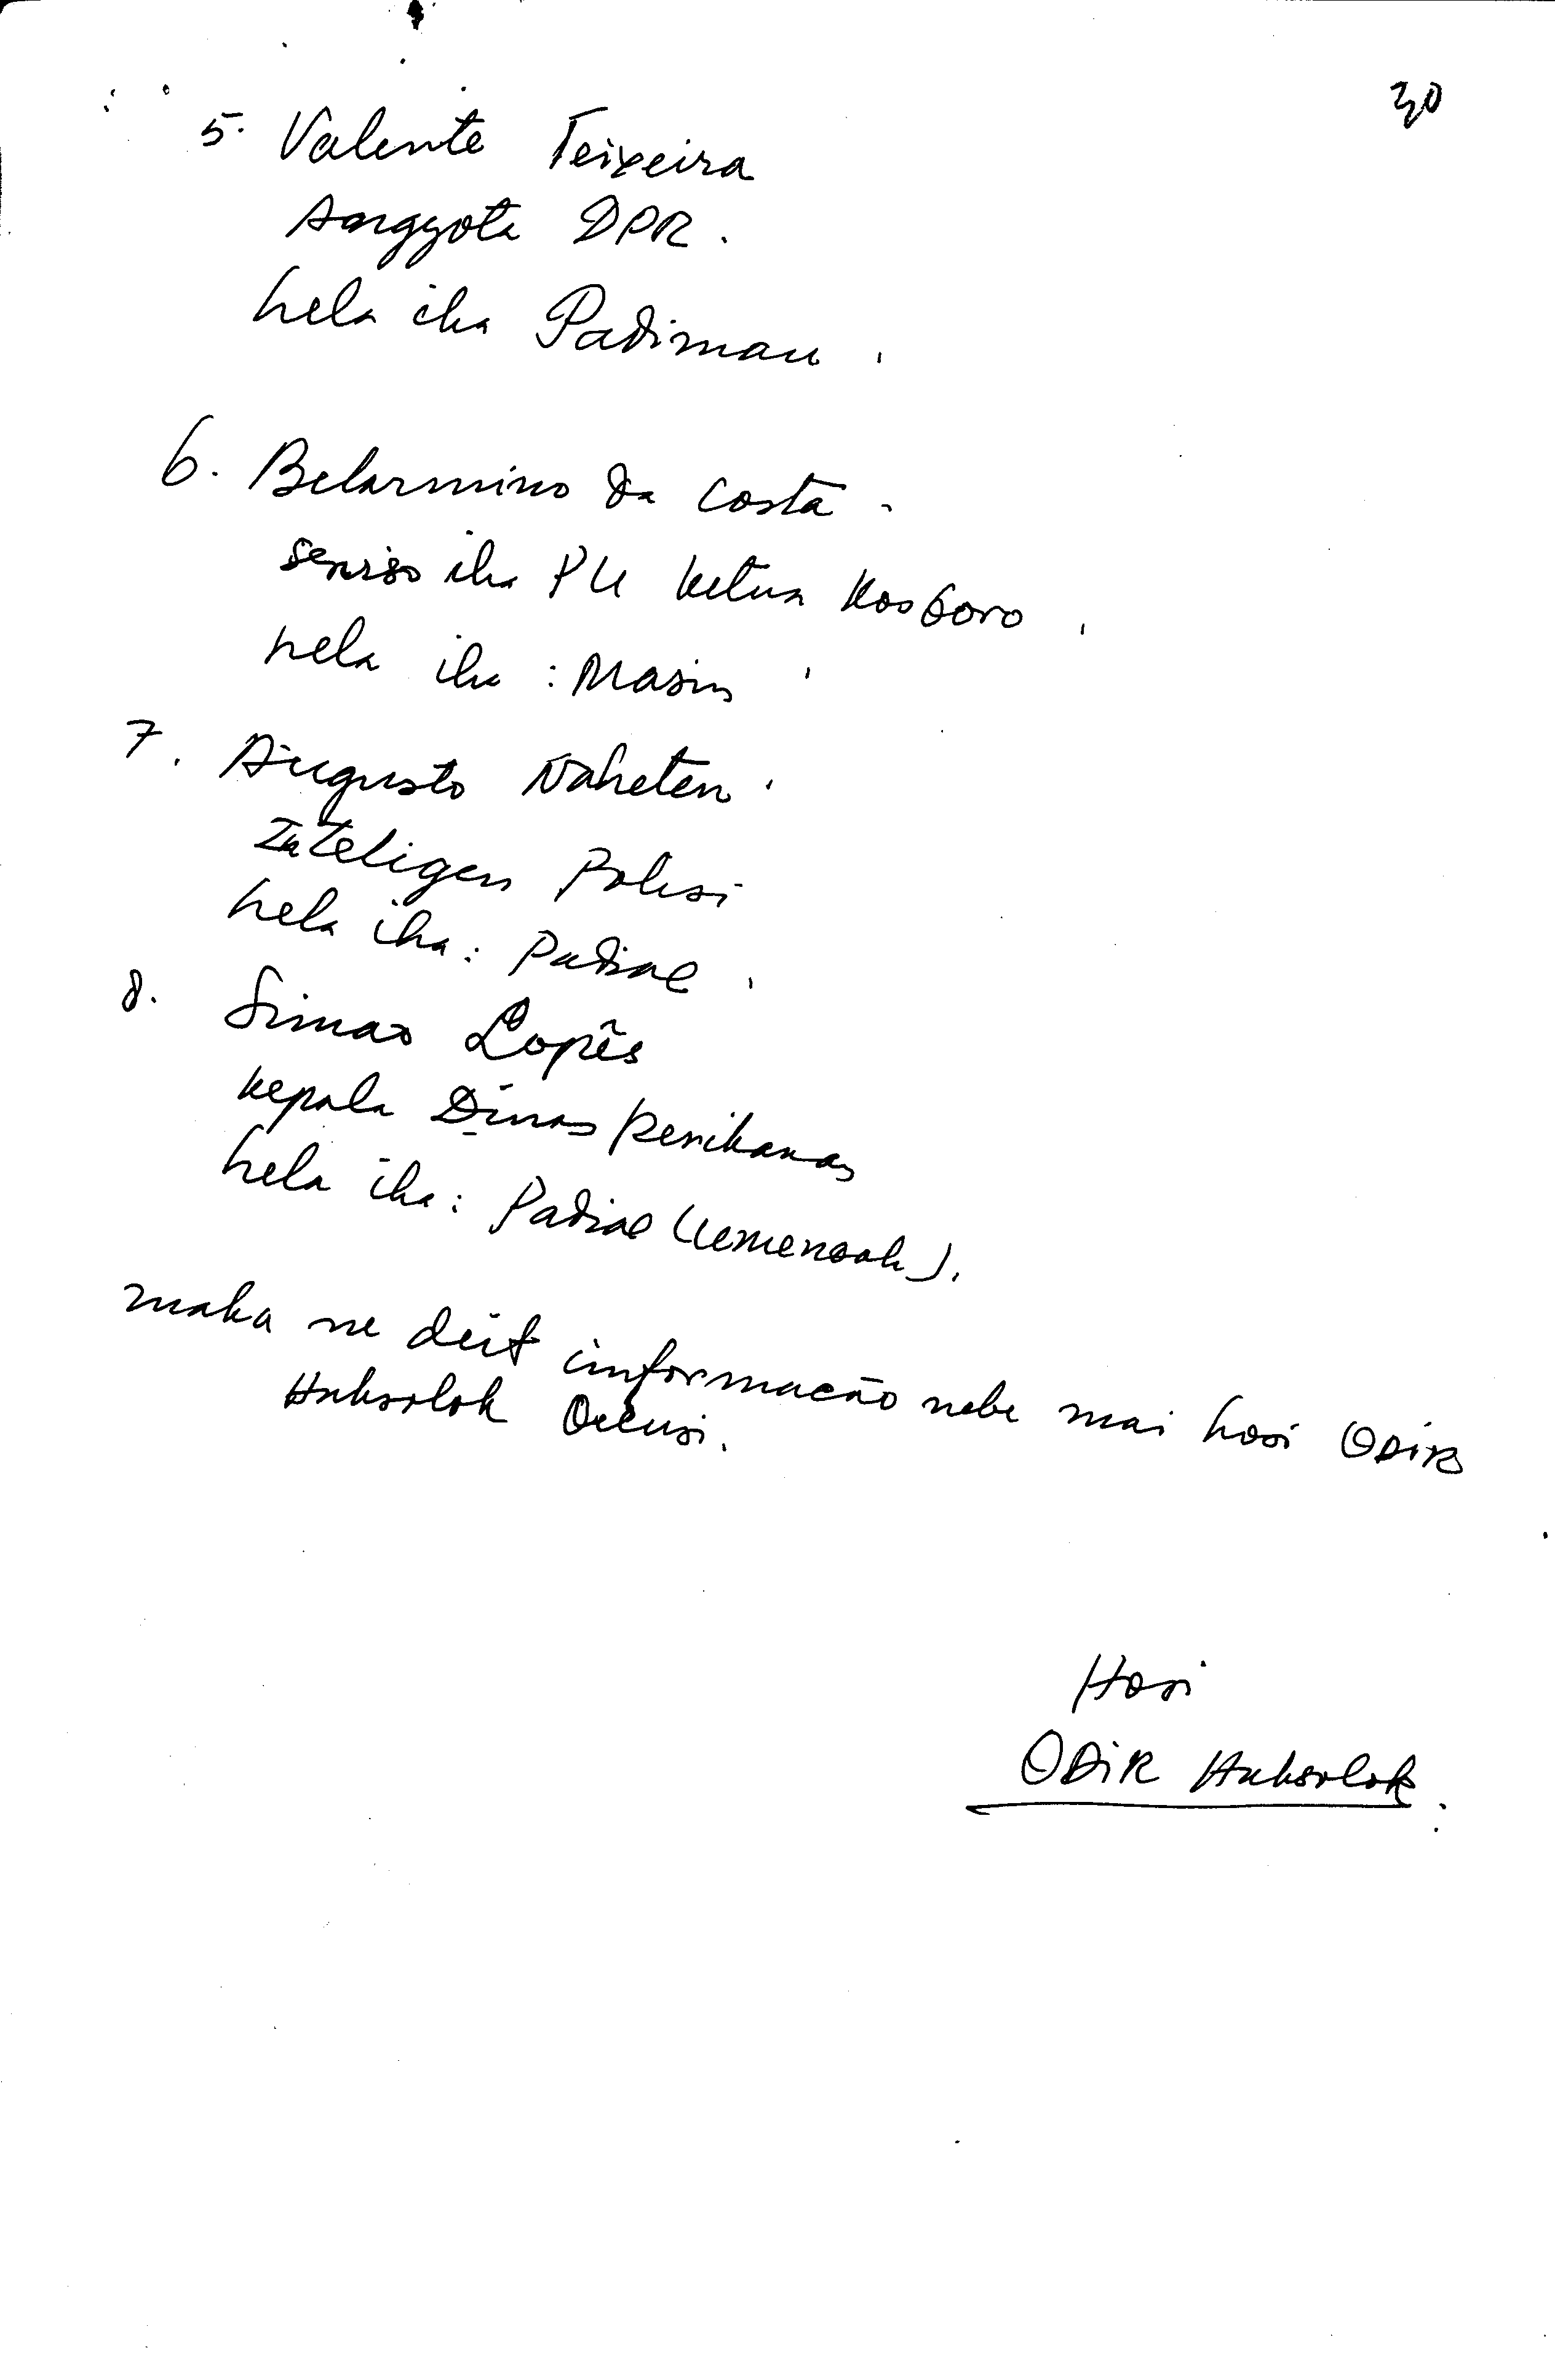 30
5. Valente Teixeira
Anggota DPR.
hela iha Padimau.
6. Belarmino da Costa.
serviso iha PU ketua KosGoro.
hela iha : Masin
7. Augusto Naheten.
Inteligen Polisi
hela iha: Padiae.
8. Simao Lopes
kepala Dinas Perikanan
hela iha: Padiae (Uemenoah).
maka ne deit informacão nebe mai hosi ODIR
Huhsolok Oecusi.
Hosi
ODIR Huhsolok.